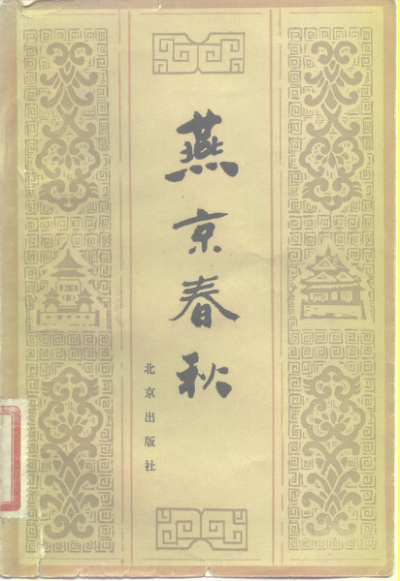 燕京春秋
北京出版社